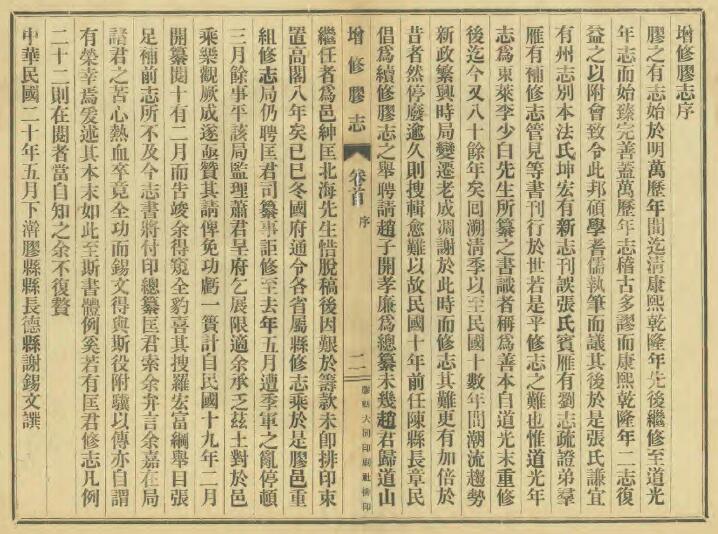 增修膠志序
膠之有志始於明萬歷年間迄清康熙乾隆年先後繼修至道光
年志而始臻完善蓋萬歷年志稽古多謬而康熙乾隆年二志復
益之以附會致令此邦碩學耆儒執筆而議其後於是張氏謙宜
有州志別本法氏坤宏有新志刊誤張氏賓雁有劉志疏證弟羣
雁有補修志管見等書刊行於世若是乎修志之難也惟道光年
志爲東萊李少白先生所纂之書識者稱爲善本自道光末重修
後迄今又八十餘年矣回溯清季以至民國十數年間潮流趨勢
新政繁興時局變遷老成凋謝於此時而修志其難更有加倍於
昔者然停廢逾久則搜輯愈難以故民國十年前任陳縣長章民
倡爲續修膠志之舉聘請趙子開孝廉爲總纂未幾趙君歸道山
增修膠志 卷首 序 二 膠縣大同印刷社排印
繼任者爲邑紳匡北海先生惜脫稿後因艱於籌款未卽排印束
置高閣八年矣已巳冬國府通令各省屬縣修志乘於是膠邑重
組修志局仍聘匡君司纂事詎修至去年五月遭季軍之亂停頓
三月餘事平該局監理蕭君旱府乞展限適余承乏茲土對於邑
乘樂觀厥成遂亟贊其請俾免功虧一簣計自民國十九年二月
開纂閱十有二月而告竣余得窺全豹喜其搜羅宏富綱舉目張
足補前志所不及今志書將付印總纂匡君索余弁言余嘉在局
諸君之苦心熱血卒竟全功而錫文得與斯役附驥以傳亦自謂
有榮幸焉爰述其本末如此至斯書體例奚若有匡君修志凡例
二十二則在閱者當自知之余不復贅
中華民國二十年五月下澣膠縣縣長德縣謝錫文譔